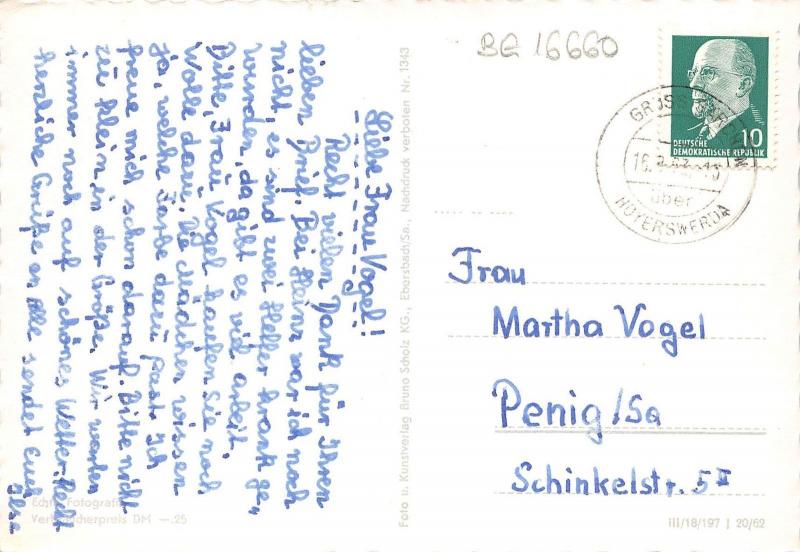 Liebe Frau Vogel!
Recht vielen Dank für Ihren
lieben Brief. Bei Heinz war ich noch
nicht, es sind zwei Helfer krank ge-
wurden, da gibt es viel Arbeit.
Bitte, Frau Vogel kaufen Sie noch
Wolle dazu. Die Mädchen wissen
ja, welche Farbe dazu past. Ich
freue mich schon darauf. Bitte nicht
zu klein, in der Größe. Wir warten
immer noch auf schönes Wetter. Recht
herzliche Grüße an Alle sendet Euch
Ilse
Echte Fotografie
Verbraucherpreis DM —.25
Foto u. Kunstverlag Bruno Scholz KG., Ebersbach/Sa., Nachdruck verboten Nr. 1343
BG 16660
10
DEUTSCHE
DEMOKRATISCHE REPUBLIK
GROSS
16.
über
HOYERSWERDA
Frau
Martha Vogel
Penig/Sa
Schinkelstr. 5 II
III/18/197 | 20/62